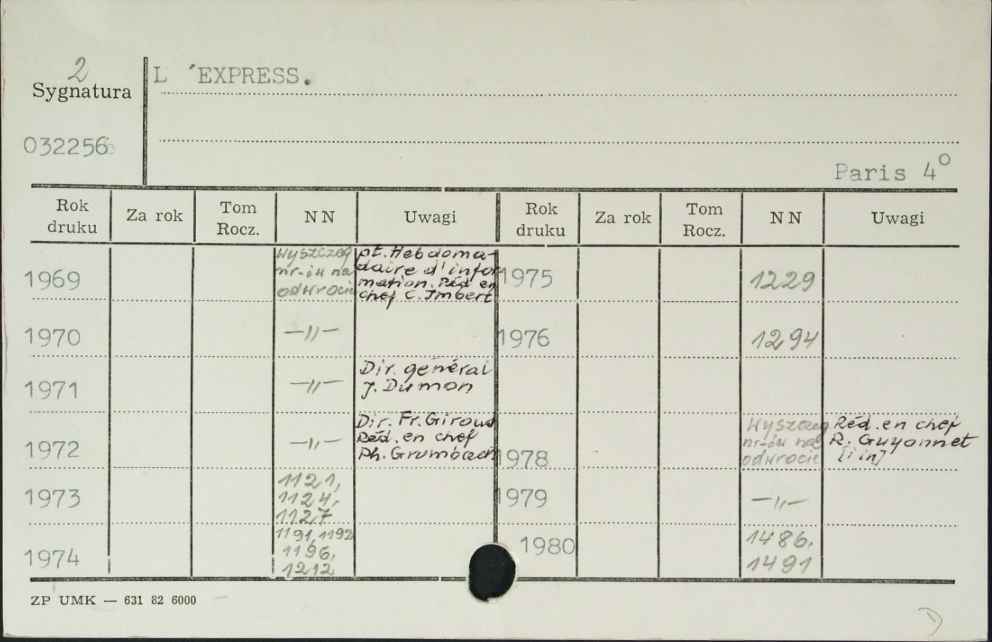 2
L 'EXPRESS.
Sygnatura
032256
Paris 4°
Rok druku Za rok Tom Rocz. NN Uwagi Rok druku Za rok Tom Rocz. NN Uwagi
1969 Wyszczeg nr-ów na odwrocie pt. Hebdoma-
daire d'infor
mation. Réd en
chef C. Imbert
1975 1229
1970 —„—
1976 1294
1971 —„— Dir. général
J. Dumon
1972 —„— Dir. Fr. Giroud
Réd. en chef
Ph. Grumbach
1978 Wyszczeg nr-ów na odwrocie Réd. en chef
R. Guyonnet
[i in]
1973 1121,
1124,
1127
1979 —„—
1974 1191, 1192
1196,
1212
1980 1486,
1491
ZP UMK — 631 82 6000